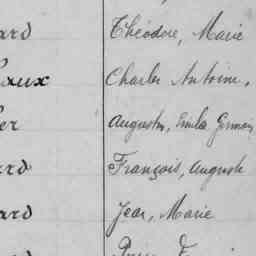 ard Théodore, Marie
aux Charles Antoine,
er Augustin, Emile Germain
ard François, Auguste
ard Jean, Marie